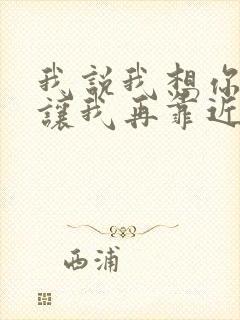 我說我想你
讓我再靠近
西浦